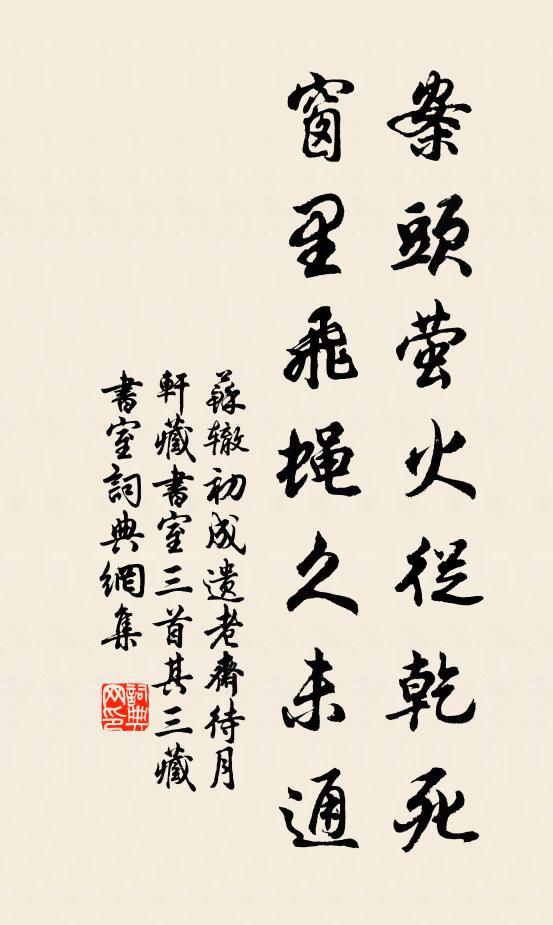 案頭萤火從乾死
窗里飛蝇久未通
蘇辙初成遺老齋待月
軒藏書室三首其三藏
書室詞典網集
詞典
网印